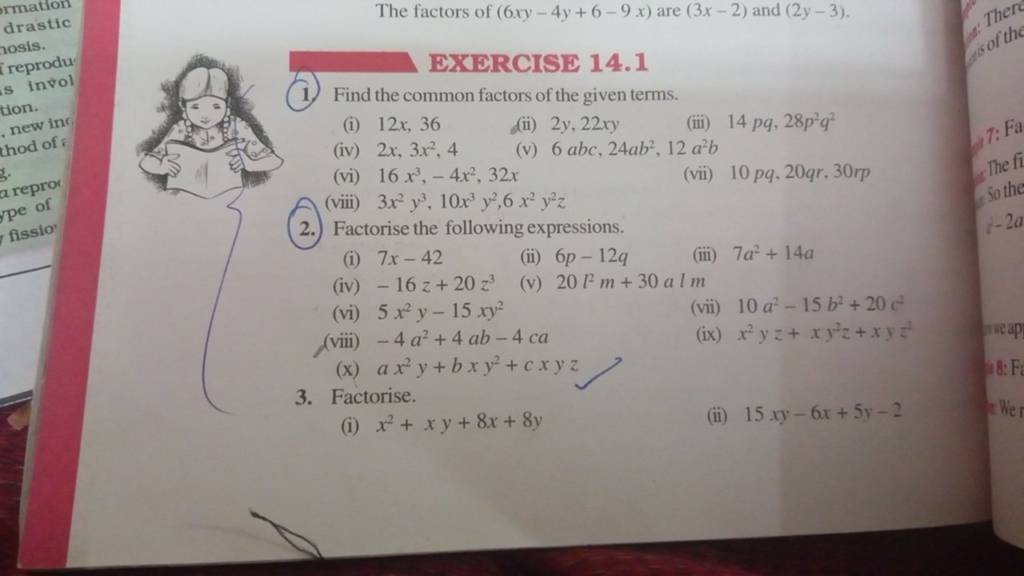 ormation
drastic
nosis.
reprodu
s invol
tion.
, new
thod of
g.
a repro
ype of
fissio
The factors of (6xy – 4y + 6 – 9 x) are (3x – 2) and (2y – 3).
EXERCISE 14.1
1. Find the common factors of the given terms.
(i) 12x, 36 (ii) 2y, 22xy (iii) 14 pq, 28p²q²
(iv) 2x, 3x², 4 (v) 6 abc, 24ab², 12 a²b
(vi) 16 x³, – 4x², 32x (vii) 10 pq, 20qr, 30rp
(viii) 3x² y³, 10x³ y²,6 x² y²z
2. Factorise the following expressions.
(i) 7x – 42 (ii) 6p – 12q (iii) 7a² + 14a
(iv) – 16 z + 20 z³ (v) 20 l² m + 30 a l m
(vi) 5 x² y – 15 xy² (vii) 10 a² – 15 b² + 20 c²
(viii) – 4 a² + 4 ab – 4 ca (ix) x² y z + x y²z + x y z²
(x) a x² y + b x y² + c x y z
3. Factorise.
(i) x² + x y + 8x + 8y (ii) 15 xy – 6x + 5y – 2
There
is of the
7: Fa
The fi
So the
– 2a
we app
8: Fa
We r